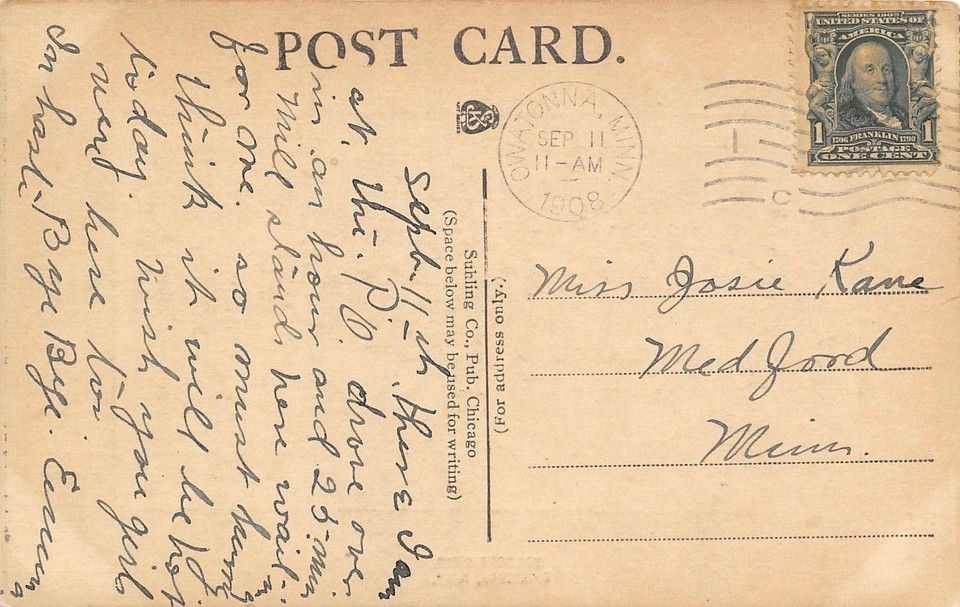 POST CARD.
SERIES 1902
UNITED STATES OF
AMERICA
1 1706 FRANKLIN 1790 1
POSTAGE
ONE CENT
OWATONNA, MINN.
SEP 11
11-AM
1908
C
Sept. 11-th. Here I am
at the P.O. drove over
in an hour and 25-min
Mill stand here waiting
for me. so must hurry
think it will be hot
today. Wish you girls
were here too.
In haste. Bye Bye. Emma
Suhling Co., Pub. Chicago
(Space below may be used for writing)
(For address only.)
Miss Josie Kane
Medford
Minn.